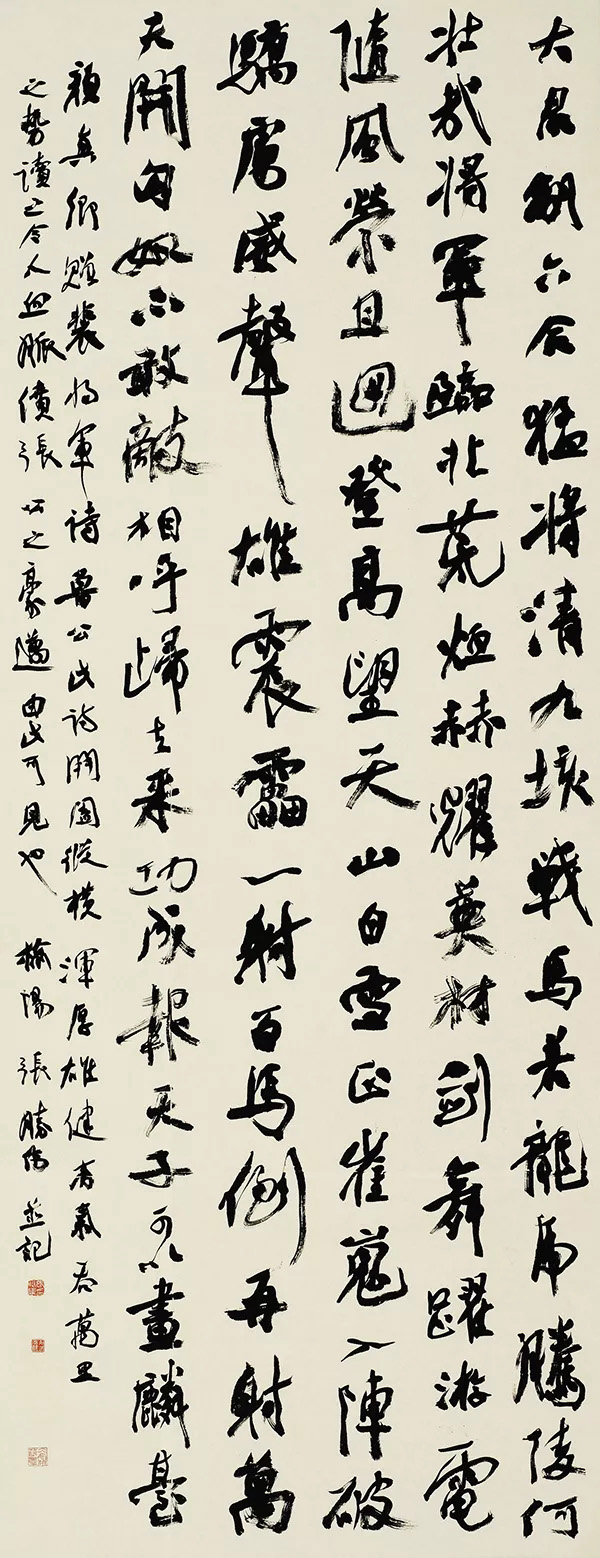 大君制六合猛将清九垓戰馬若龍虎騰陵何
壯哉将軍臨北荒烜赫耀英材劍舞躍游電
隨風縈且迴登高望天山白雪正崔嵬入陣破
驕虜威聲雄震雷一射百馬倒再射萬
夫開匈奴不敢敵相呼歸去來功成報天子可以畫麟臺
顏真卿贈裴将軍詩魯公此詩開闔縱橫渾厚雄健有氣吞萬里
之勢讀之令人血脈僨張公之豪邁由此可見也 榆陽張勝偉並記